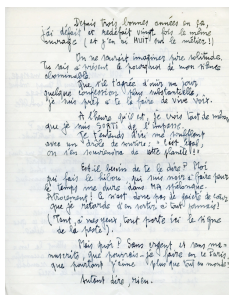 Depuis trois bonnes années en ça,
j'ai défait et redéfait vingt fois le même
ouvrage (et j'en ai HUIT sur le métier !)
On ne saurait imaginer pire solitude.
Tu sais à présent le pourquoi de mon silence
abominable.
Que, s'il t'agrée d'ouïr un jour
quelque confession plus substantielle,
je suis prêt à te la faire de vive voix.
A l'heure qu'il est, je vois tout de même
que je suis SORTI de l'impasse.
Je t'entends d'ici me
avec un drôle de sourire : "C'est égal,
on s'en souviendra de cette planète !"
Est-il besoin de te le dire ? Moi
qui fais le hibou, qui suis mort à faire peur
le temps me dure dans MA spélonque.
Atrocement ! Ce n'est donc pas de gaieté de cœur
que je retarde d'en sortir à tout jamais !
(Tant, à mes yeux, tout porte ici le signe
de la peste !).
Mais quoi ? Sans argent et sans ma-
nuscrits, que pourrais-je faire en ce Paris,
que pourtant j'aime plus que tout au monde ?
Autant dire, rien.